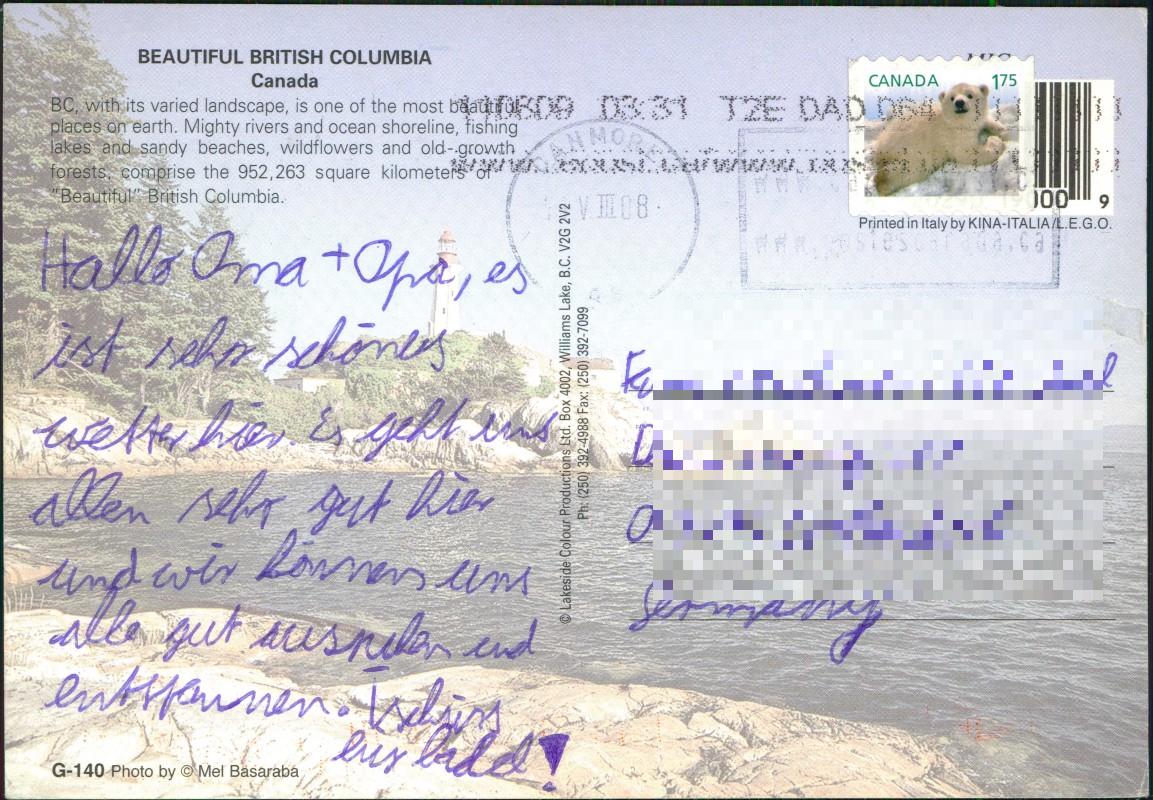 BEAUTIFUL BRITISH COLUMBIA
Canada
BC, with its varied landscape, is one of the most beautiful
places on earth. Mighty rivers and ocean shoreline, fishing
lakes and sandy beaches, wildflowers and old-growth
forests, comprise the 952,263 square kilometers of
"Beautiful" British Columbia.
Hallo Oma + Opa, es
ist sehr schönes
wetter hier. Es geht uns
allen sehr gut hier
und wir können uns
alle gut ausruhen und
entspannen. Tschüss
bis bald!
G-140 Photo by © Mel Basaraba
© Lakeside Colour Productions Ltd. Box 4002, Williams Lake, B.C. V2G 2V2
Ph: (250) 392-4988 Fax: (250) 392-7099
03:31 T2E DAD
CANMORE
CANADA 175
000 9
Printed in Italy by KINA-ITALIA/L.E.G.O.
Germany